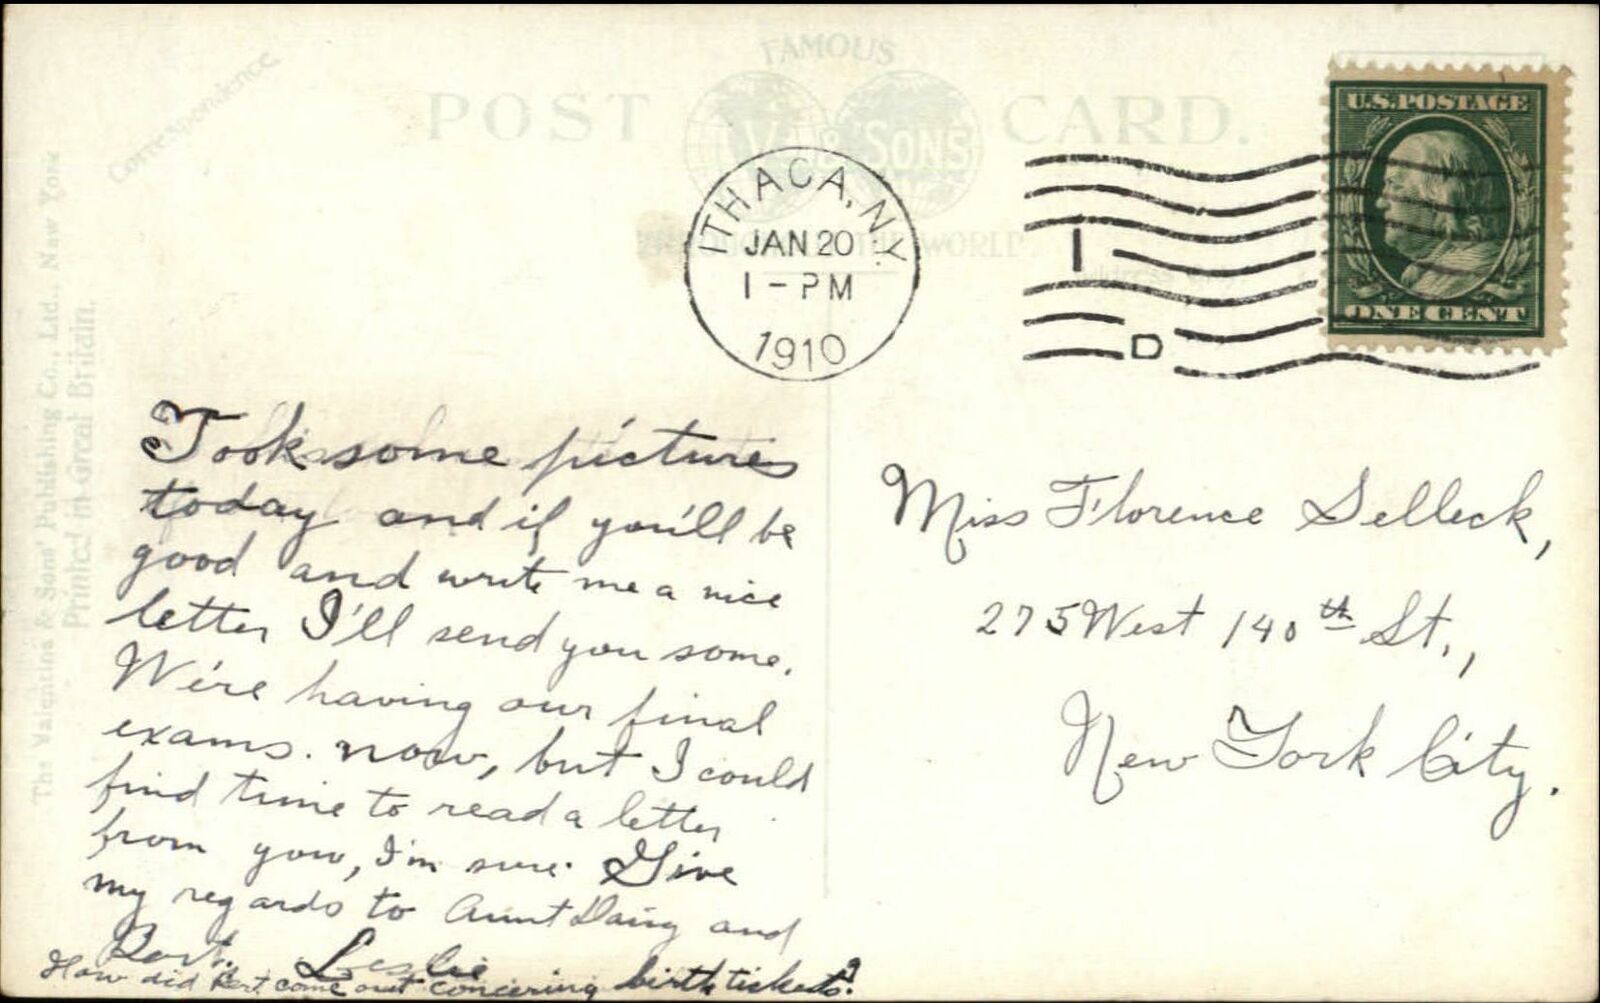 FAMOUS
POST CARD.
SONS
WORLD
Correspondence
The Valentine & Sons' Publishing Co., Ltd., New York
Printed in Great Britain.
ITHACA, N.Y.
JAN 20
1-PM
1910
I
D
U.S. POSTAGE
ONE CENT
Took some pictures
today and if you'll be
good and write me a nice
letter I'll send you some.
We're having our final
exams. now, but I could
find time to read a letter
from you, I'm sure. Give
my regards to Aunt Daisy and
Bert. Leslie
How did Bert come out concerning birth tickets?
Miss Florence Selleck,
275 West 140th St.,
New York City.